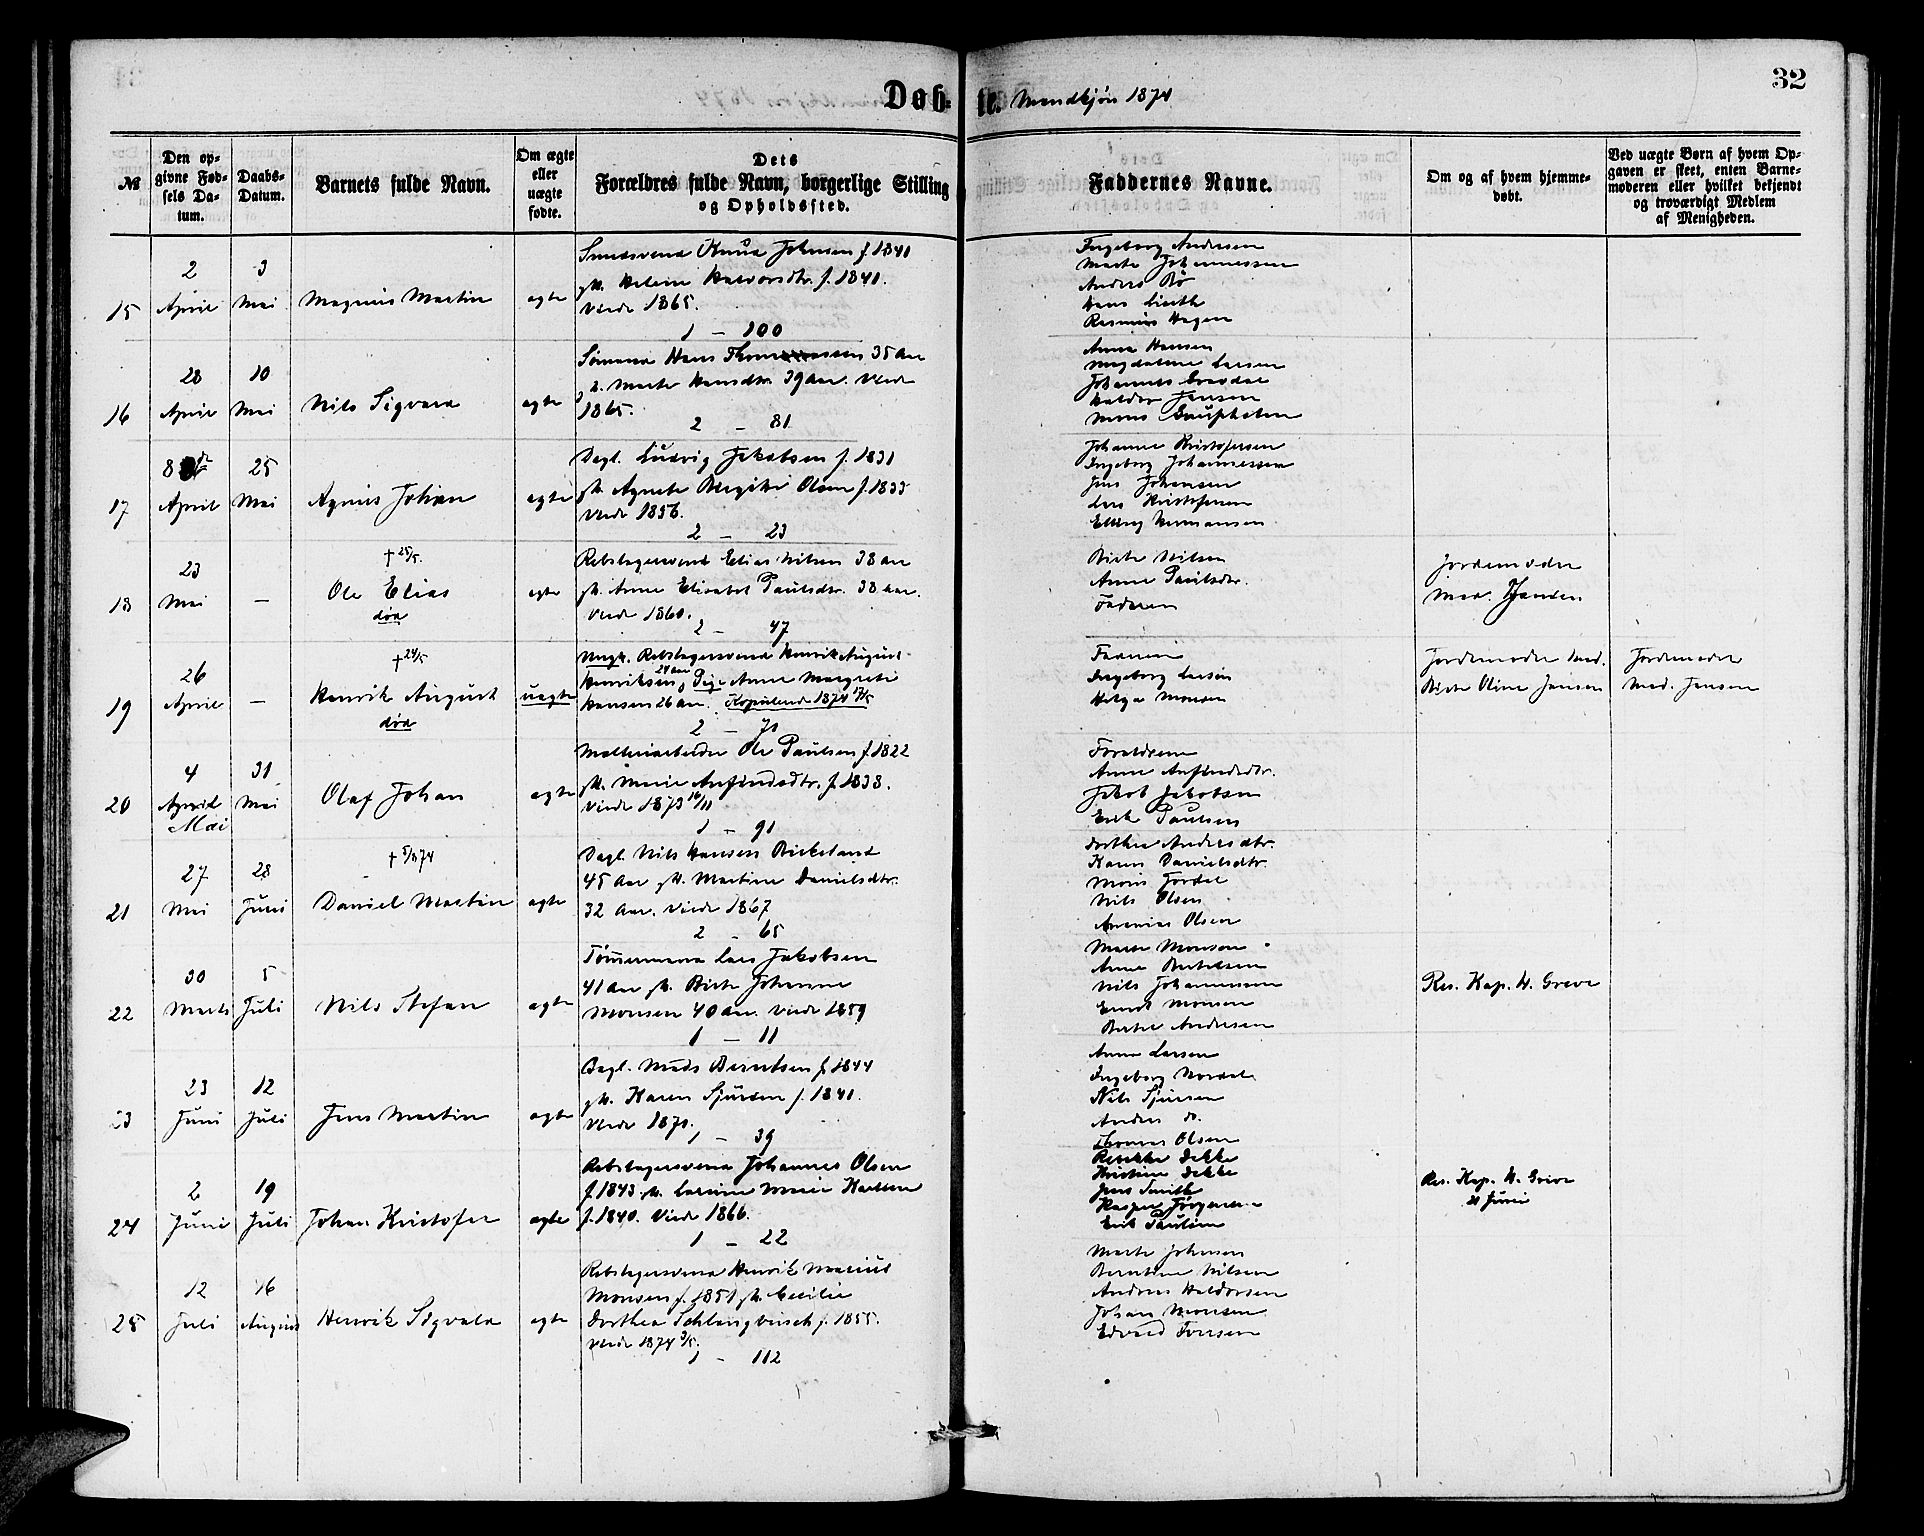 32
Døbte. Mandkjøn 1874
№
Den opgivne Fødsels Datum.
Daabs-Datum.
Barnets fulde Navn.
Om ægte eller uægte fødte.
Dets Forældres fulde Navn, borgerlige Stilling og Opholdssted.
Faddernes Navne.
Om og af hvem hjemmedøbt.
Ved uægte Børn af hvem Opgaven er skeet, enten Barnemoderen eller hvilket bekjendt og troværdigt Medlem af Menigheden.
15
2 April
3 Mai
Magnus Martin
ægte
Smedsvend Knud Johnsen f. 1841
Helene Halvorsdtr. f. 1841.
Viede 1865.
1 – 100
Ingeborg Andersen
Marte Johannessen
Anders Bø
Hans
Rasmus Hagen
16
28 April
10 Mai
Nils Sigvard
ægte
Sømand Hans 35 Aar
Marte Hansdtr. 39 Aar. Viede
1865.
2 – 81
Anna Hansen
Magdalene Larsen
Johannes
Haldor Jensen
Mons
17
8 April
25 Mai
Agnus Johan
ægte
Dagl. Ludvig Jakobsen f. 1831
Agnete Olsen f. 1833
Viede 1856.
2 – 23
Johanne Kristofersen
Ingeborg Johannessen
Jens Johansen
Lars Kristofersen
Hermansen
18
23 Mai
–
† 25/5.
Ole Elias
død
ægte
Rebslagersvend Elias Nilsen 38 Aar
Anne Elisabet Paulsdtr. 38 Aar.
Viede 1860.
2 – 47
Birte Nilsen
Anne Paulsdtr.
Faderen
Jordemoder
Mad. Jensen
19
26 April
–
† 24/5
Henrik August
død
uægte
Ungk. Rebslagersvend Henrik August
Henriksen 24 Aar Pige Anne Margrete
Hansen 26 Aar. Kopulerede 1874
2 – 71
Ingeborg Larsen
Helga Monsen
Jordemoder Mad.
Birte Oline Jensen
Jordemoder
Mad. Jensen
20
4 April
Mai
31 Mai
Olaf Johan
ægte
Ole Paulsen f. 1822
Marie Anfindsdtr. f. 1838.
Viede 1873 16/11
1 – 91
Forældrene
Anne Anfindsdtr.
Jakob Jakobsen
Erik Paulsen
21
27 Mai
28 Juni
† 5/8 74
Daniel Martin
ægte
Dagl. Nils Hansen Birkeland
45 Aar Martine Danielsdtr.
32 Aar. Viede 1867
2 – 65
Dorthea Andersdtr.
Karen Danielsdtr.
Mons Jordal
Nils Olsen
Ananias Olsen
22
30 Marts
5 Juli
Nils Stefan
ægte
Tømmermand Lars Jakobsen
41 Aar Birte Johanne
Monsen 40 Aar. Viede 1859
1 – 11
Marte Monsen
Anne Bertelsen
Nils Johannessen
Monsen
Bertel Andersen
Res. Kap. H. Greve
23
23 Juni
12 Juli
Jens Martin
ægte
Dagl. Mads Berntsen f. 1844
Karen Sjursen f. 1841.
Viede 1871.
1 – 39
Anna Larsen
Ingeborg Nordal
Nils Sjursen
Anders do.
Thomas Olsen
24
2 Juni
19 Juli
Johan Kristofer
ægte
Rebslagersvend Johannes Olsen
f. 1843. Marie
f. 1840. Viede 1866.
1 – 22
Rebekka Dekke
Kristine Dekke
Jens Smith
Kasper Jørgensen
Erik Paulsen
Res. Kap. H. Greve
21 Juni
25
12 Juli
16 August
Henrik Sigvald
ægte
Rebslagersvend Henrik Marius
Monsen f. 1851 Cecilie
Dorthea f. 1855.
Viede 1874 3/5.
1 – 112
Marte Johnsen
Berntine Nilsen
Andreas Haldorsen
Johan Monsen
Edvard Iversen